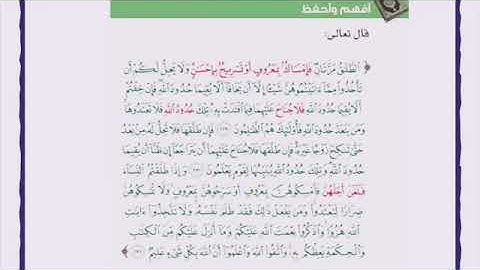 أفهم وأحفظ
قال تعالى:
﴿ ٱلطَّلَٰقُ مَرَّتَانِ فَإِمْسَاكٌۢ بِمَعْرُوفٍ أَوْ تَسْرِيحٌۢ بِإِحْسَٰنٍ وَلَا يَحِلُّ لَكُمْ أَن
تَأْخُذُوا۟ مِمَّآ ءَاتَيْتُمُوهُنَّ شَيْـًٔا إِلَّآ أَن يَخَافَآ أَلَّا يُقِيمَا حُدُودَ ٱللَّهِ فَإِنْ خِفْتُمْ
أَلَّا يُقِيمَا حُدُودَ ٱللَّهِ فَلَا جُنَاحَ عَلَيْهِمَا فِيمَا ٱفْتَدَتْ بِهِۦ تِلْكَ حُدُودُ ٱللَّهِ فَلَا تَعْتَدُوهَا
وَمَن يَتَعَدَّ حُدُودَ ٱللَّهِ فَأُو۟لَٰٓئِكَ هُمُ ٱلظَّٰلِمُونَ ﴿٢٢٩﴾ فَإِن طَلَّقَهَا فَلَا تَحِلُّ لَهُۥ مِنۢ بَعْدُ
حَتَّىٰ تَنكِحَ زَوْجًا غَيْرَهُۥ فَإِن طَلَّقَهَا فَلَا جُنَاحَ عَلَيْهِمَآ أَن يَتَرَاجَعَآ إِن ظَنَّآ أَن يُقِيمَا
حُدُودَ ٱللَّهِ وَتِلْكَ حُدُودُ ٱللَّهِ يُبَيِّنُهَا لِقَوْمٍ يَعْلَمُونَ ﴿٢٣٠﴾ وَإِذَا طَلَّقْتُمُ ٱلنِّسَآءَ
فَبَلَغْنَ أَجَلَهُنَّ فَأَمْسِكُوهُنَّ بِمَعْرُوفٍ أَوْ سَرِّحُوهُنَّ بِمَعْرُوفٍ وَلَا تُمْسِكُوهُنَّ
ضِرَارًا لِّتَعْتَدُوا۟ وَمَن يَفْعَلْ ذَٰلِكَ فَقَدْ ظَلَمَ نَفْسَهُۥ وَلَا تَتَّخِذُوٓا۟ ءَايَٰتِ
ٱللَّهِ هُزُوًا وَٱذْكُرُوا۟ نِعْمَتَ ٱللَّهِ عَلَيْكُمْ وَمَآ أَنزَلَ عَلَيْكُم مِّنَ ٱلْكِتَٰبِ
وَٱلْحِكْمَةِ يَعِظُكُم بِهِۦ وَٱتَّقُوا۟ ٱللَّهَ وَٱعْلَمُوٓا۟ أَنَّ ٱللَّهَ بِكُلِّ شَىْءٍ عَلِيمٌ ﴿٢٣١﴾